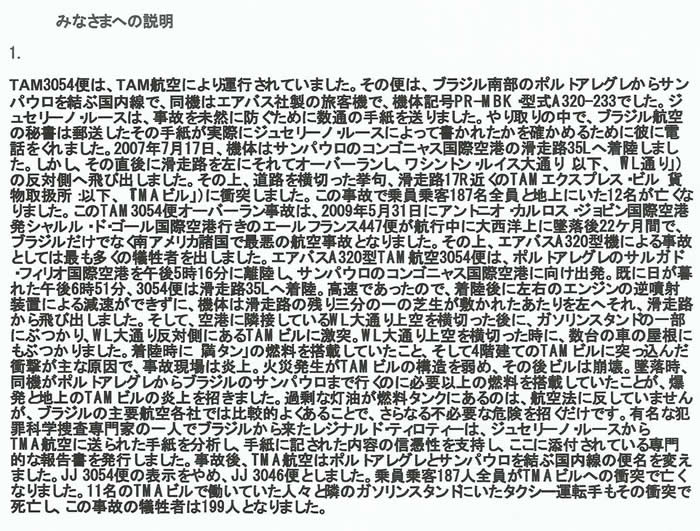 みなさまへの説明
1.
TAM3054便は、TAM航空により運行されていました。その便は、ブラジル南部のポルトアレグレからサン
パウロを結ぶ国内線で、同機はエアバス社製の旅客機で、機体記号PR-MBK・型式A320-233でした。ジ
ュセリーノ・ルースは、事故を未然に防ぐために数通の手紙を送りました。やり取りの中で、ブラジル航空
の秘書は郵送したその手紙が実際にジュセリーノ・ルースによって書かれたかを確かめるために彼に電
話をくれました。2007年7月17日、機体はサンパウロのコンゴニャス国際空港の滑走路35Lへ着陸しまし
た。しかし、その直後に滑走路を左にそれてオーバーランし、ワシントン・ルイス大通り 以下、「WL通り」)
の反対側へ飛び出しました。その上、道路を横切った挙句、滑走路17R近くのTAMエクスプレス・ビル 貨
物取扱所:以下、「TMAビル」)に衝突しました。この事故で乗員乗客187名全員と地上にいた12名が亡くな
りました。このTAM3054便オーバーラン事故は、2009年5月31日にアントニオ・カルロス・ジョビン国際空港
発シャルル・ド・ゴール国際空港行きのエールフランス447便が航行中に大西洋上に墜落後22ケ月間で、
ブラジルだけでなく南アメリカ諸国で最悪の航空事故となりました。その上、エアバスA320型機による事故
としては最も多くの犠牲者を出しました。エアバスA320型TAM航空3054便は、ポルトアレグレのサルガド
・フィリオ国際空港を午後5時16分に離陸し、サンパウロのコンゴニャス国際空港に向け出発。既に日が暮
れた午後6時51分、3054便は滑走路35Lへ着陸。高速であったので、着陸後に左右のエンジンの逆噴射
装置による減速ができずに、機体は滑走路の残り三分の一の芝生が敷かれたあたりを左へそれ、滑走路
から飛び出しました。そして、空港に隣接しているWL大通り上空を横切った後に、ガソリンスタンドの一部
にぶつかり、WL大通り反対側にあるTAMビルに激突。WL大通り上空を横切った時に、数台の車の屋根に
もぶつかりました。着陸時に「満タン」の燃料を搭載していたこと、そして4階建てのTAMビルに突っ込んだ
衝撃が主な原因で、事故現場は炎上。火災発生がTAMビルの構造を弱め、その後ビルは崩壊。墜落時、
同機がポルトアレグレからブラジルのサンパウロまで行くのに必要以上の燃料を搭載していたことが、爆
発と地上のTAMビルの炎上を招きました。過剰な灯油が燃料タンクにあるのは、航空法に反していません
が、ブラジルの主要航空各社では比較的よくあることで、さらなる不必要な危険を招くだけです。有名な犯
罪科学捜査専門家の一人でブラジルから来たレジナルド・ティロティーは、ジュセリーノ・ルースから
TMA航空に送られた手紙を分析し、手紙に記された内容の信憑性を支持し、ここに添付されている専門
的な報告書を発行しました。事故後、TMA航空はポルトアレグレとサンパウロを結ぶ国内線の便名を変え
ました。JJ 3054便の表示をやめ、JJ 3046便としました。乗員乗客187人全員がTMAビルへの衝突で亡く
なりました。11名のTMAビルで働いていた人々と隣のガソリンスタンドにいたタクシー運転手もその衝突で
死亡し、この事故の犠牲者は199人となりました。